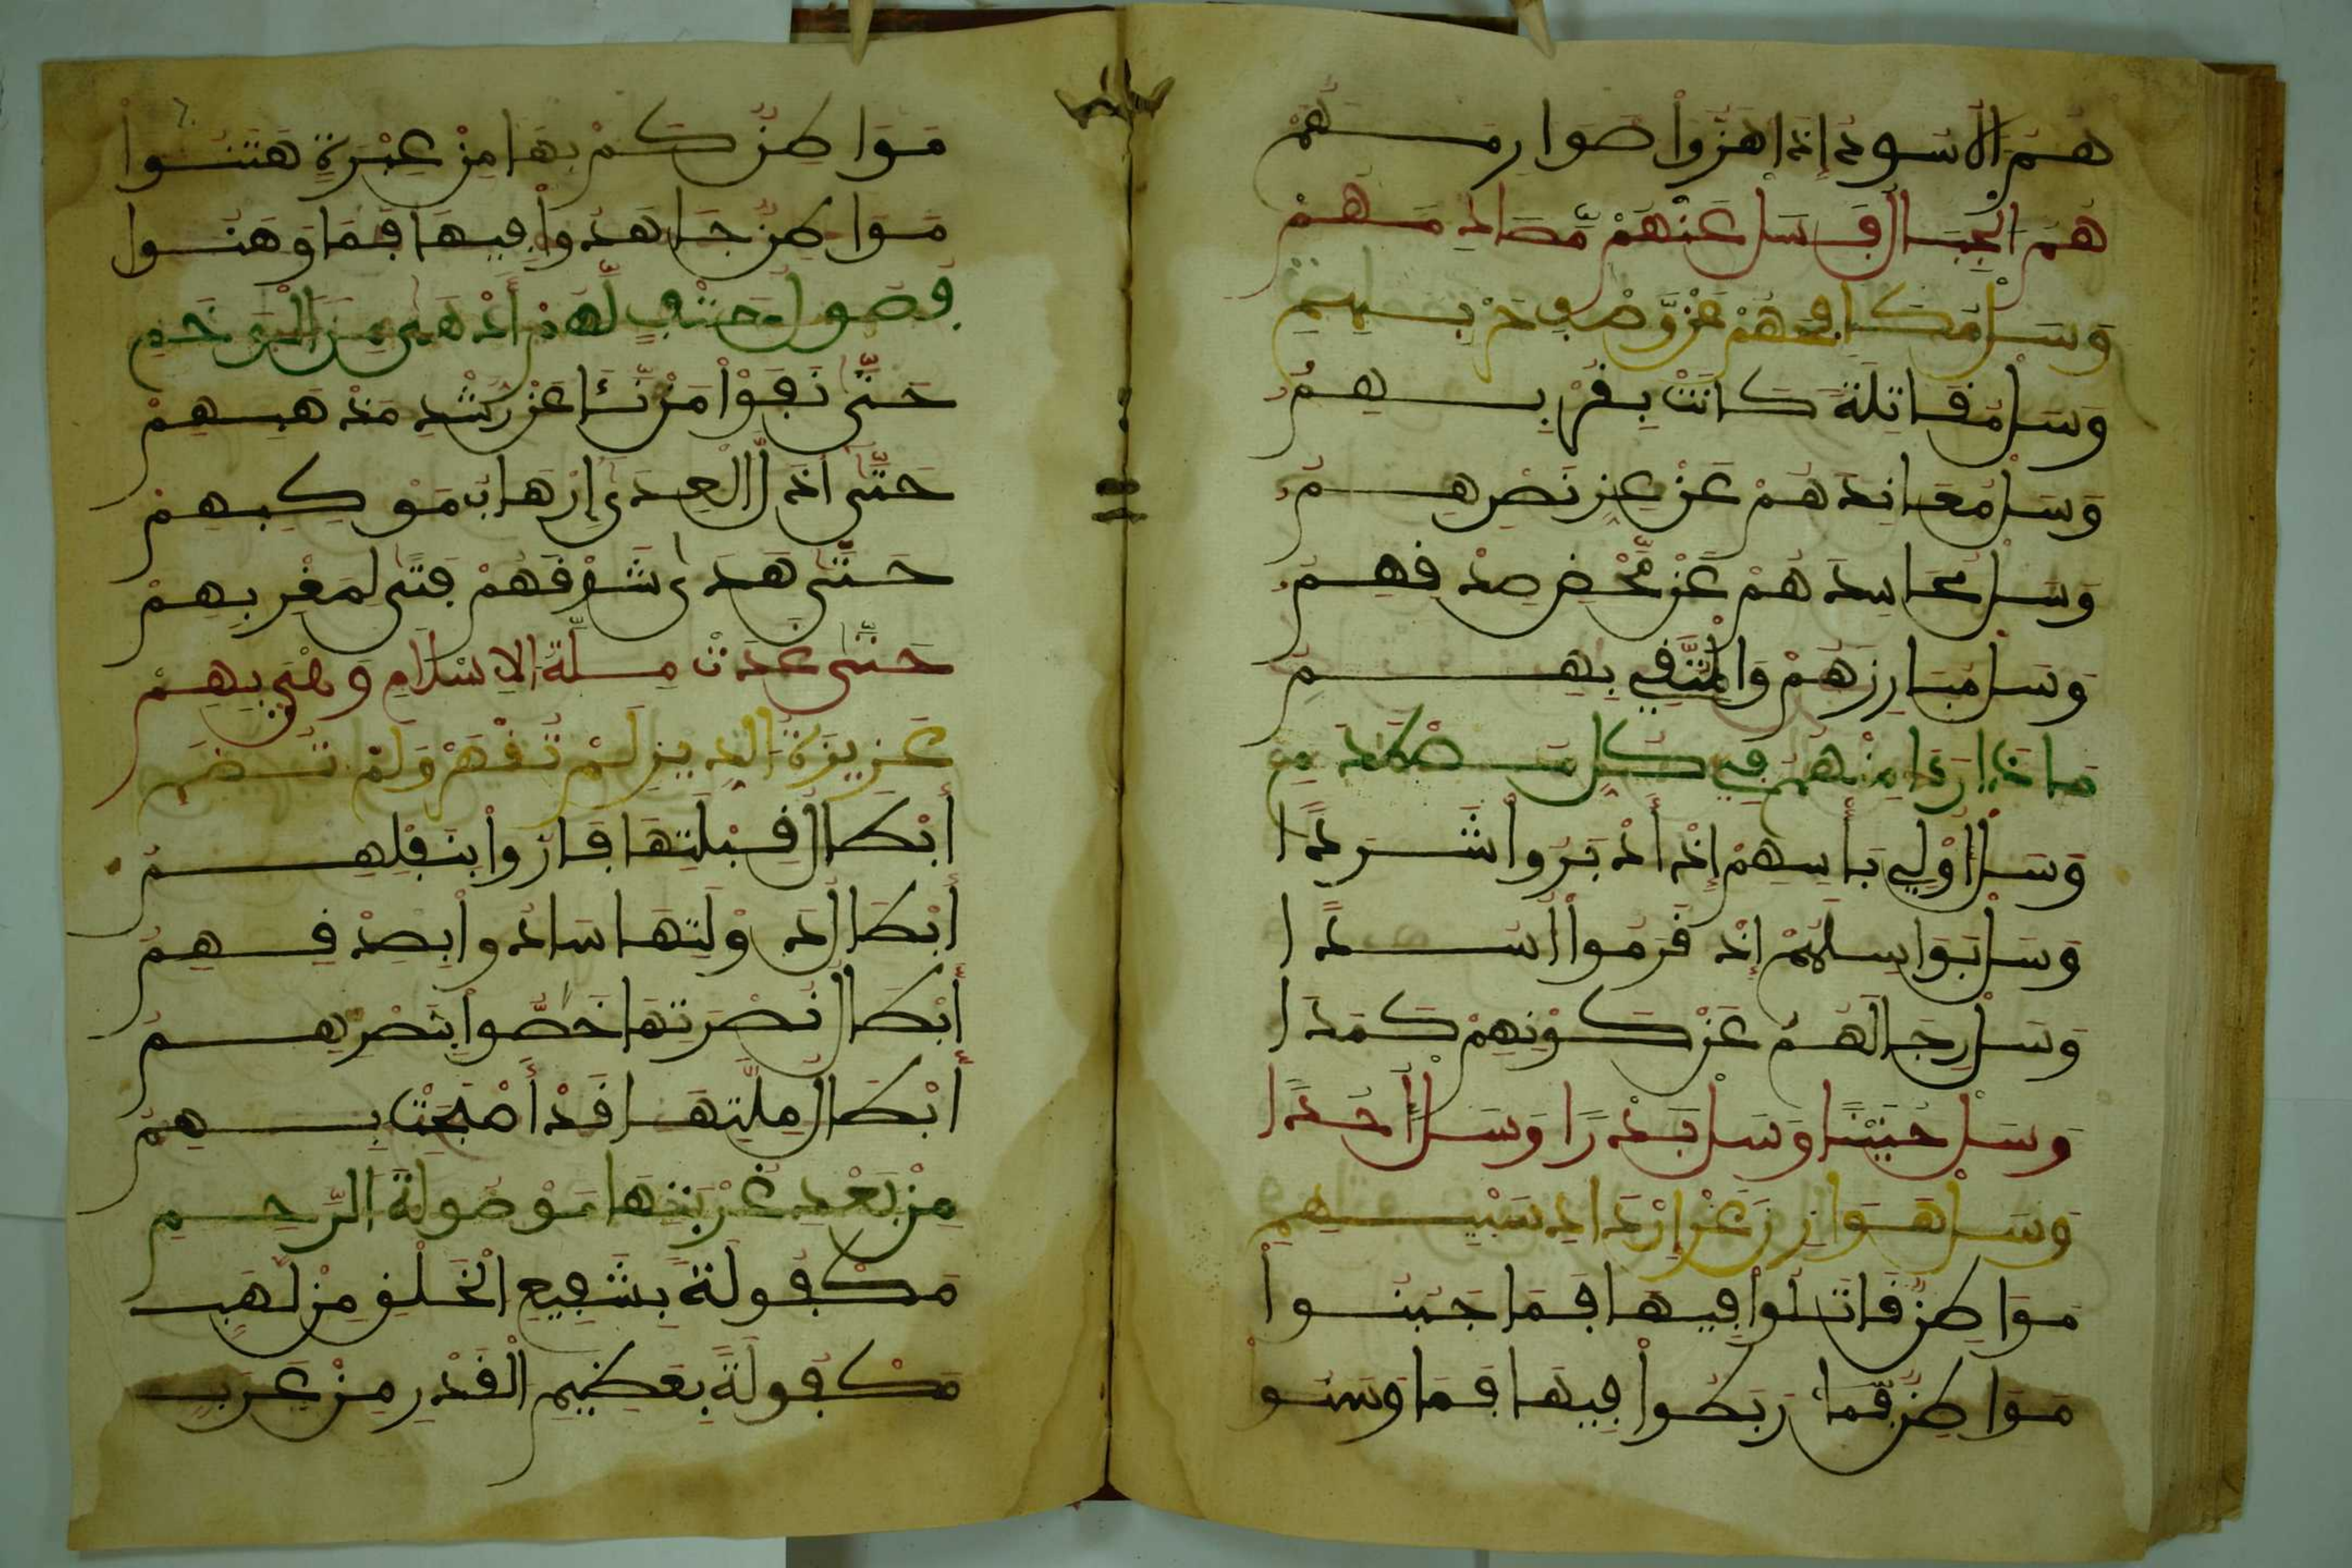 هُمُ الْاسُودُ إِذَا هَزُّوا صَوَارِمَهُمْ
هُمُ الْجِبَالُ فَسَلْ عَنْهُمْ مُّصَادِمَهُمْ
وَسَلْ مُكَافِحَهُمْ عَن وَّصْفِ حَرْبِهِمِ
وَسَلْ مُقَاتِلَةً كَانَتْ بِقُرْبِهِمُ
وَسَلْ مُعَانِدَهُمْ عَنْ عِزِّ نَصْرِهِمُ
وَسَلْ مُحَاسِدَهُمْ عَن مَّحْضِ صِدْقِهِمُ
وَسَلْ مُبَارِزَهُمْ وَالْمُتَّقِي بِهِمِ
مَاذَا رَءَا مِنْهُمُ فِي كُلِّ مُصْطَدَمِ
وَسَلْ أُوْلِي بَأْسِهِمْ إِذْ أَدْبَرُوا شَرَدًا
وَسَلْ بَوَاسِلَهُمْ إِذْ قَرَمُوا أَسَدًا
وَسَلْ رِجَالَهُمُ عَنْ كَوْنِهِمْ كَمَدَا
وَسَلْ حُنَيْنًا وَسَلْ بَدْرًا وَسَلْ أُحُدًا
وَسَلْ هَوَازِنَ عَنْ إِرْدَادِ سَبْيِهِمِ
مَوَاطِنٌ قَاتَلُوا فِيهَا فَمَا جَبُنُوا
مَوَاطِنٌ رَبَطُوا فِيهَا فَمَا وَسَنُو
مَوَاطِنٌ كَمْ بِهَا مِنْ عِبْرَةٍ هَتَنُوا
مَوَاطِنٌ جَاهَدُوا فِيهَا فَمَا وَهَنُوا
فُصُولُ حَتْفٍ لَّهُمْ أَدْهَى مِنَ الْوَخَمِ
حَتَّى نَفَوْا مَنْ نَّئَا عَنْ رُشْدِ مَذْهَبِهِمْ
حَتَّى أَذَلَّ الْعِدَى إِرْهَابُ مَوْكِبِهِمْ
حَتَّى هَدَى شَرْقَهُمْ فَتَى لِمَغْرِبِهِمْ
حَتَّى غَدَتْ مِلَّةُ الِاسْلَامِ وَهْيَ بِهِمْ
عَزِيزَةَ الدِّينِ لَمْ تُقْهَرْ وَلَمْ تُضَمِ
أَبْطَالُ قِبْلَتِهَا فَازُوا بِنَفْلِهِمُ
أَبْطَالُ دَوْلَتِهَا سَادُوا بِصِدْقِهِمُ
أَبْطَالُ نُصْرَتِهَا خُصُّوا بِنَصْرِهِمُ
أَبْطَالُ مِلَّتِهَا قَدْ أَصْبَحَتْ بِهِمُ
مِنْ بَعْدِ غُرْبَتِهَا مَوْصُولَةَ الرَّحِمِ
مَكْفُولَةً بِشَفِيعِ الْخَلْقِ مِنْ لَهَبِ
مَكْفُولَةً بِعَظِيمِ الْقَدْرِ مِنْ عَرَبِ